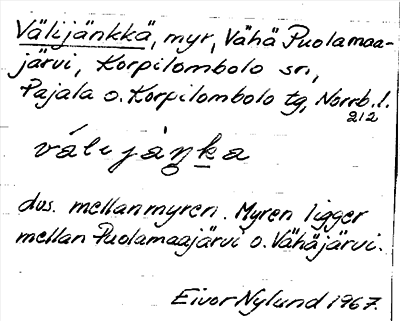 Välijänkkä, myr, Vähä Puolamaa-
järvi, Korpilombolo sn,
Pajala o. Korpilombolo tg, Norrb. l.
212
váli jáŋka
dvs. mellanmyren. Myren ligger
mellan Puolamaajärvi o. Vähäjärvi.
Eivor Nylund 1967.